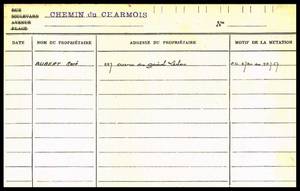 RUE
BOULEVARD
AVENUE
PLACE
CHEMIN du CHARMOIS
N°
DATE NOM DU PROPRIÉTAIRE ADRESSE DU PROPRIÉTAIRE MOTIF DE LA MUTATION
AUBERT avenue du Général Leclerc